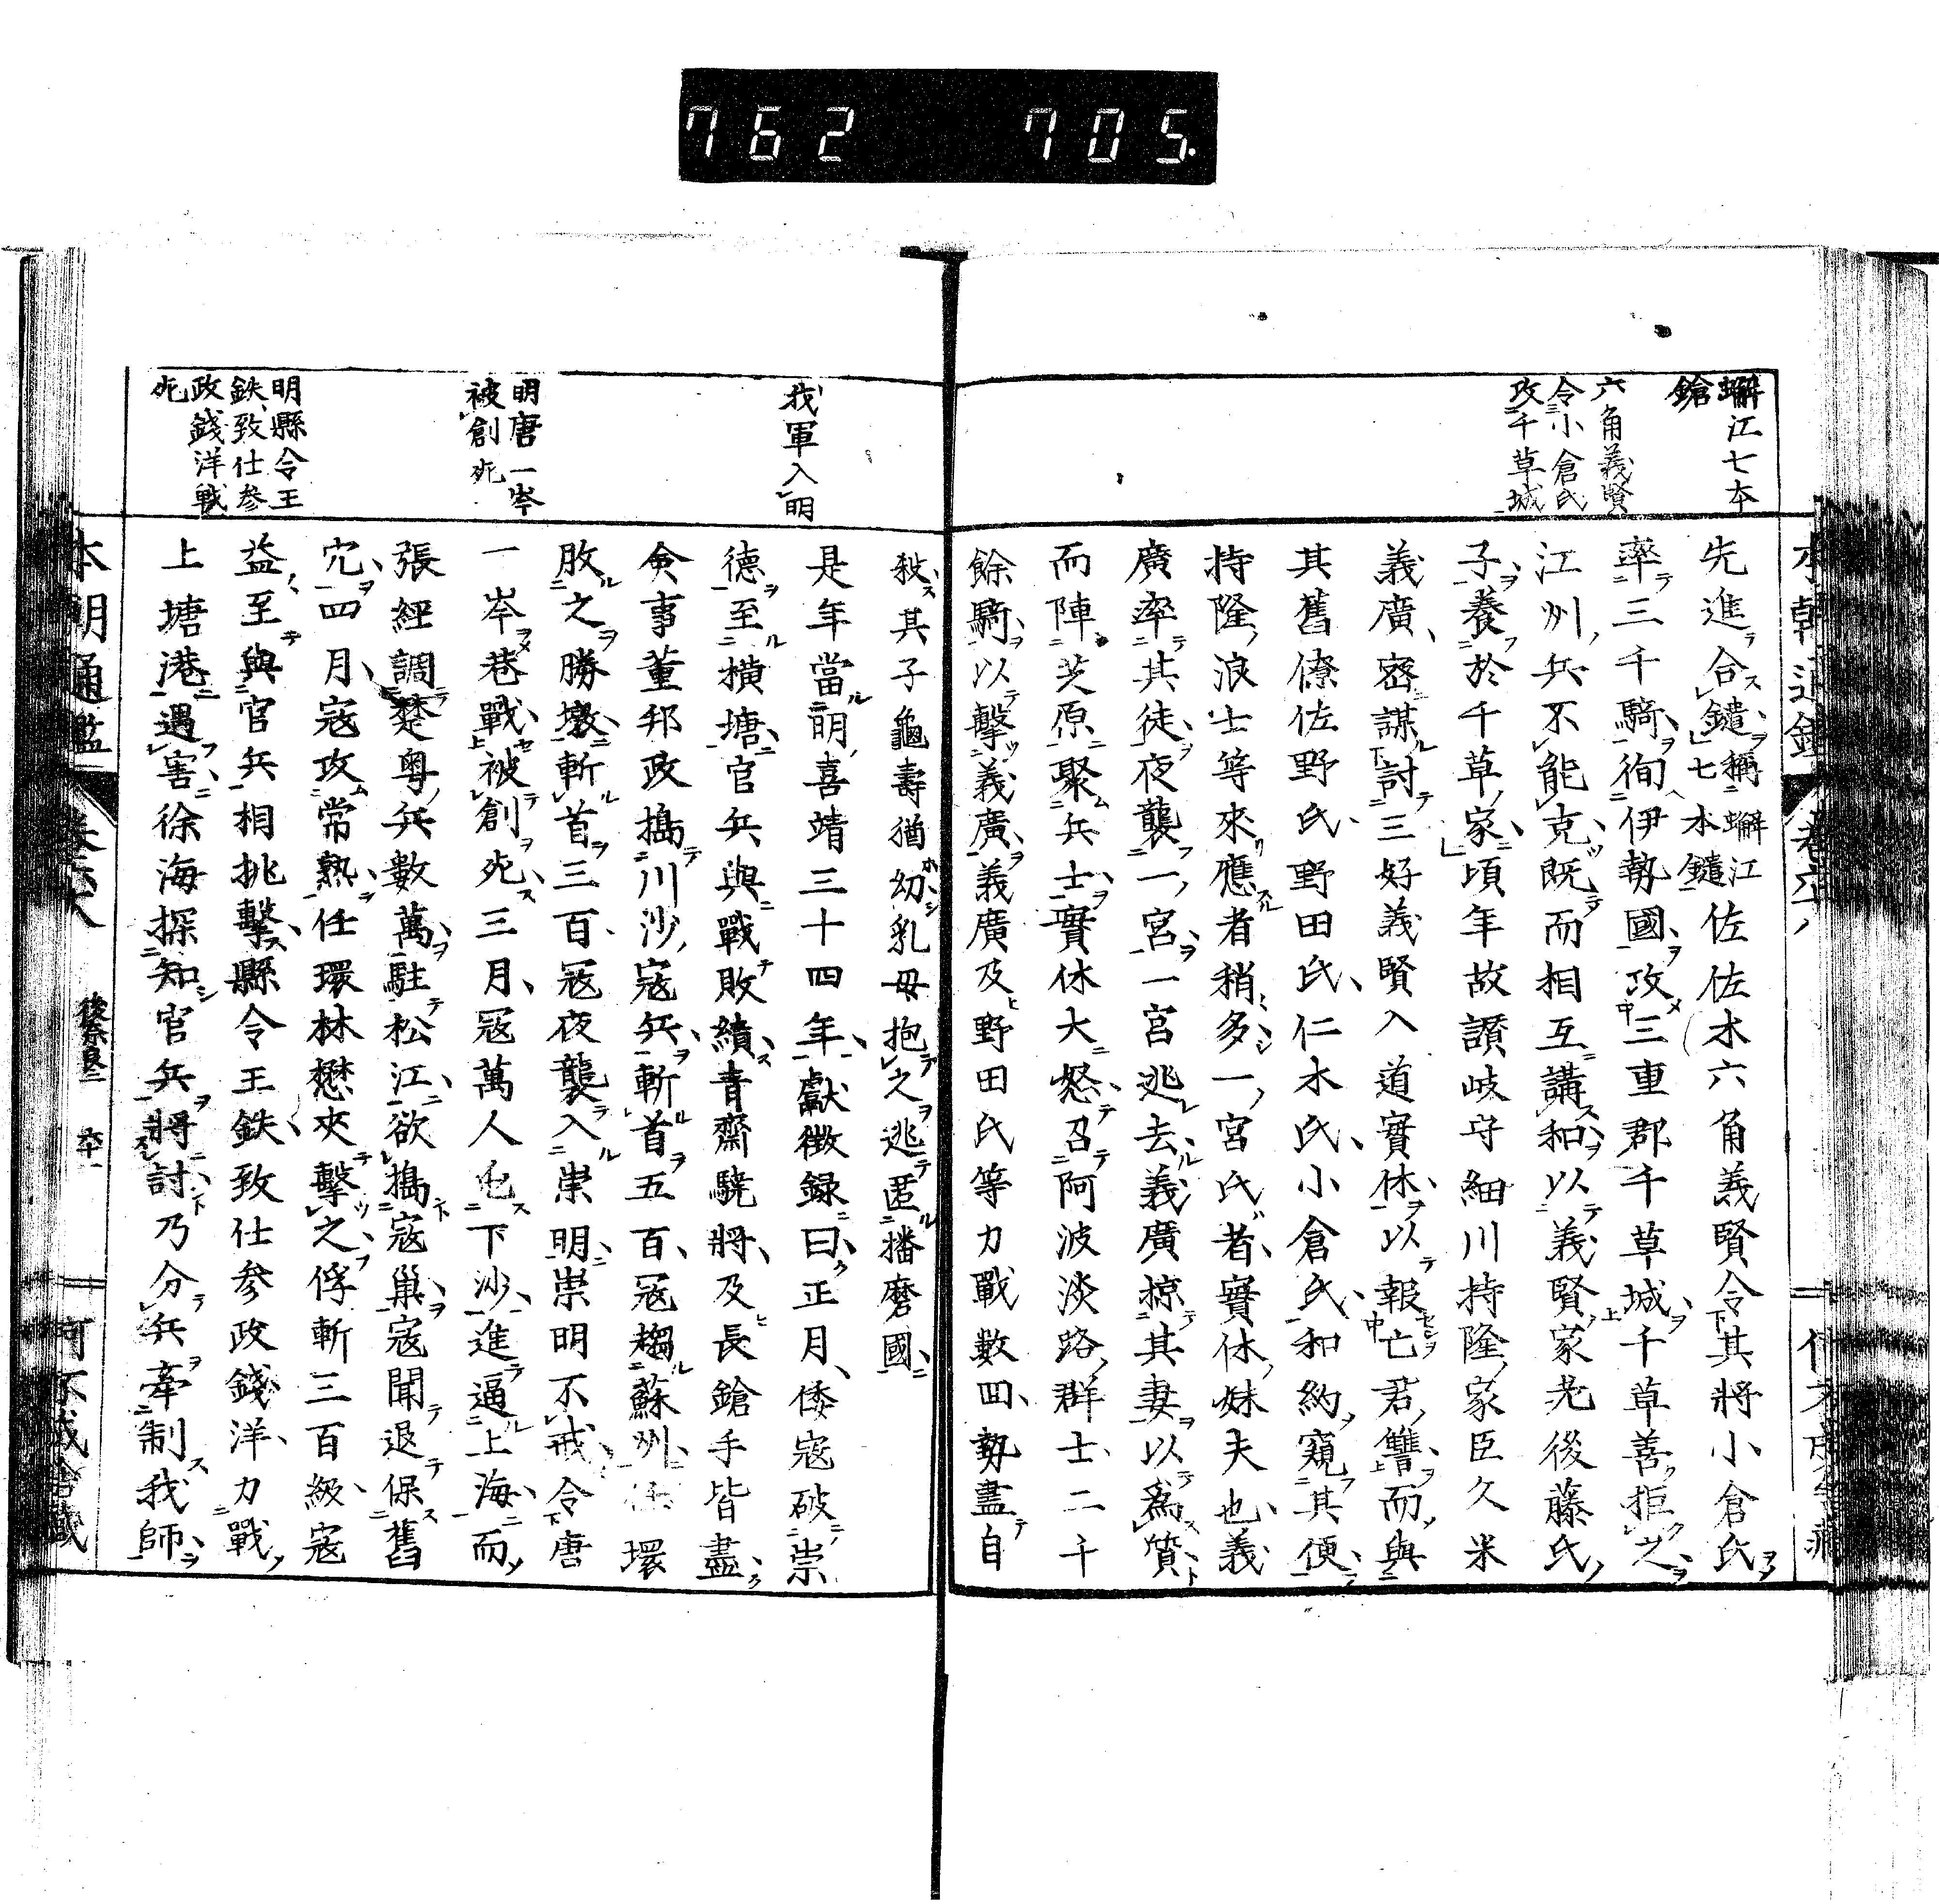 762 705.
蠏江七本
鎗
六角義賢
令小倉氏
攻千草城
先進合鑓稱蠏江七本鑓佐佐木六角義賢令其將小倉氏
率三千騎徇伊勢國攻三重郡千草城千草善拒之
江州兵不能克既而相互講和以義賢家老後藤氏
子養於千草家頃年故讃岐守細川持隆家臣久米
義廣密謀討三好義賢入道實休以報亡君讎而與
其舊僚佐野氏野田氏仁木氏小倉氏和約窺其便
持隆浪士等來應者稍多一宮氏者實休妹夫也義
廣率其徒夜襲一宮一宮逃去義廣掠其妻以爲質
而陣芝原聚兵士實休大怒召阿波淡路群士二千
餘騎以擊義廣義廣及野田氏等力戰數回勢盡自
我軍入明
明唐一岑
被創死
明縣令王
鉄致仕參
政錢洋戰
死
殺其子龜壽猶幼乳母抱之逃匿播磨國
是年當明嘉靖三十四年獻徴録曰正月倭寇破崇
德至横塘官兵與戰敗績青齋驍將及長鎗手皆盡
僉事董邦政搗川沙寇兵斬首五百寇趨蘇州任環
敗之勝墩斬首三百寇夜襲入崇明崇明不戒令唐
一岑巷戰被創死三月寇萬人屯下沙進逼上海而
張經調楚粤兵數萬駐松江欲搗寇巢寇聞退保舊
穴四月寇攻常熟任環林懋夾擊之俘斬三百級寇
益至與官兵相挑擊縣令王鉄致仕參政錢洋力戰
上塘港遇害徐海探知官兵將討乃分兵牽制我師
本朝通鑑
後奈良二